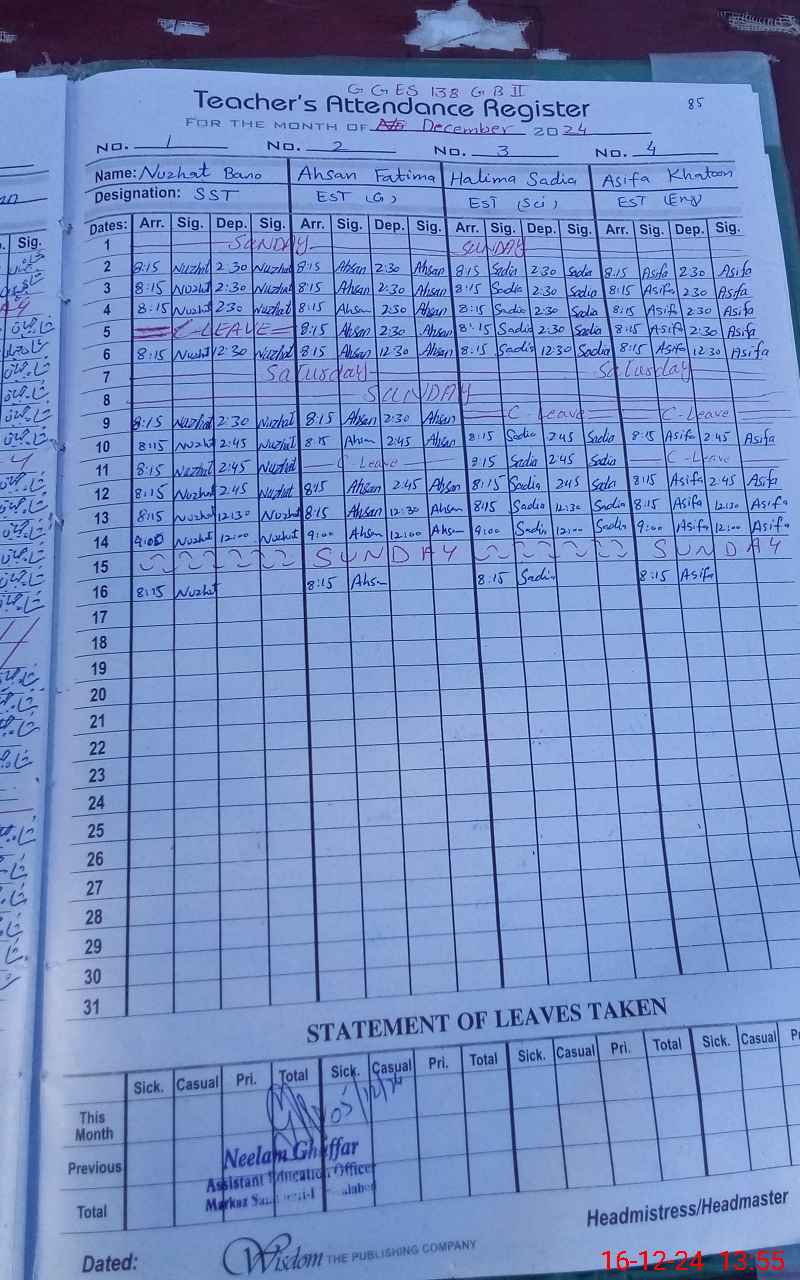 G G ES 138 G B II
Teacher's Attendance Register 85
FOR THE MONTH OF December 2024
NO. 1 NO. 2 NO. 3 NO. 4
Name: Nuzhat Bano Ahsan Fatima Halima Sadia Asifa Khatoon
Designation: SST EST (G) EST (Sci) EST (Eng)
Dates: Arr. Sig. Dep. Sig. Arr. Sig. Dep. Sig. Arr. Sig. Dep. Sig. Arr. Sig. Dep. Sig.
1 SUNDAY SUNDAY
2 8:15 Nuzhat 2:30 Nuzhat 8:15 Ahsan 2:30 Ahsan 8:15 Sadia 2:30 Sadia 8:15 Asifa 2:30 Asifa
3 8:15 Nuzhat 2:30 Nuzhat 8:15 Ahsan 2:30 Ahsan 8:15 Sadia 2:30 Sadia 8:15 Asifa 2:30 Asifa
4 8:15 Nuzhat 2:30 Nuzhat 8:15 Ahsan 2:30 Ahsan 8:15 Sadia 2:30 Sadia 8:15 Asifa 2:30 Asifa
5 C-LEAVE 8:15 Ahsan 2:30 Ahsan 8:15 Sadia 2:30 Sadia 8:15 Asifa 2:30 Asifa
6 8:15 Nuzhat 12:30 Nuzhat 8:15 Ahsan 12:30 Ahsan 8:15 Sadia 12:30 Sadia 8:15 Asifa 12:30 Asifa
7 Saturday Saturday
8 SUNDAY
9 8:15 Nuzhat 2:30 Nuzhat 8:15 Ahsan 2:30 Ahsan C-Leave C-Leave
10 8:15 Nuzhat 2:45 Nuzhat 8:15 Ahsan 2:45 Ahsan 8:15 Sadia 2:45 Sadia 8:15 Asifa 2:45 Asifa
11 8:15 Nuzhat 2:45 Nuzhat C-Leave 8:15 Sadia 2:45 Sadia C-Leave
12 8:15 Nuzhat 2:45 Nuzhat 8:15 Ahsan 2:45 Ahsan 8:15 Sadia 2:45 Sadia 8:15 Asifa 2:45 Asifa
13 8:15 Nuzhat 12:30 Nuzhat 8:15 Ahsan 12:30 Ahsan 8:15 Sadia 12:30 Sadia 8:15 Asifa 12:30 Asifa
14 9:00 Nuzhat 12:00 Nuzhat 9:00 Ahsan 12:00 Ahsan 9:00 Sadia 12:00 Sadia 9:00 Asifa 12:00 Asifa
15 SUNDAY SUNDAY
16 8:15 Nuzhat 8:15 Ahsan 8:15 Sadia 8:15 Asifa
17
18
19
20
21
22
23
24
25
26
27
28
29
30
31
STATEMENT OF LEAVES TAKEN
Sick. Casual Pri. Total Sick. Casual Pri. Total Sick. Casual Pri. Total Sick. Casual
This Month
Previous
Total
05/12/24
Neelam Ghaffar
Assistant Education Officer
Markaz
Headmistress/Headmaster
Dated: Wisdom THE PUBLISHING COMPANY
16-12-24 13:55